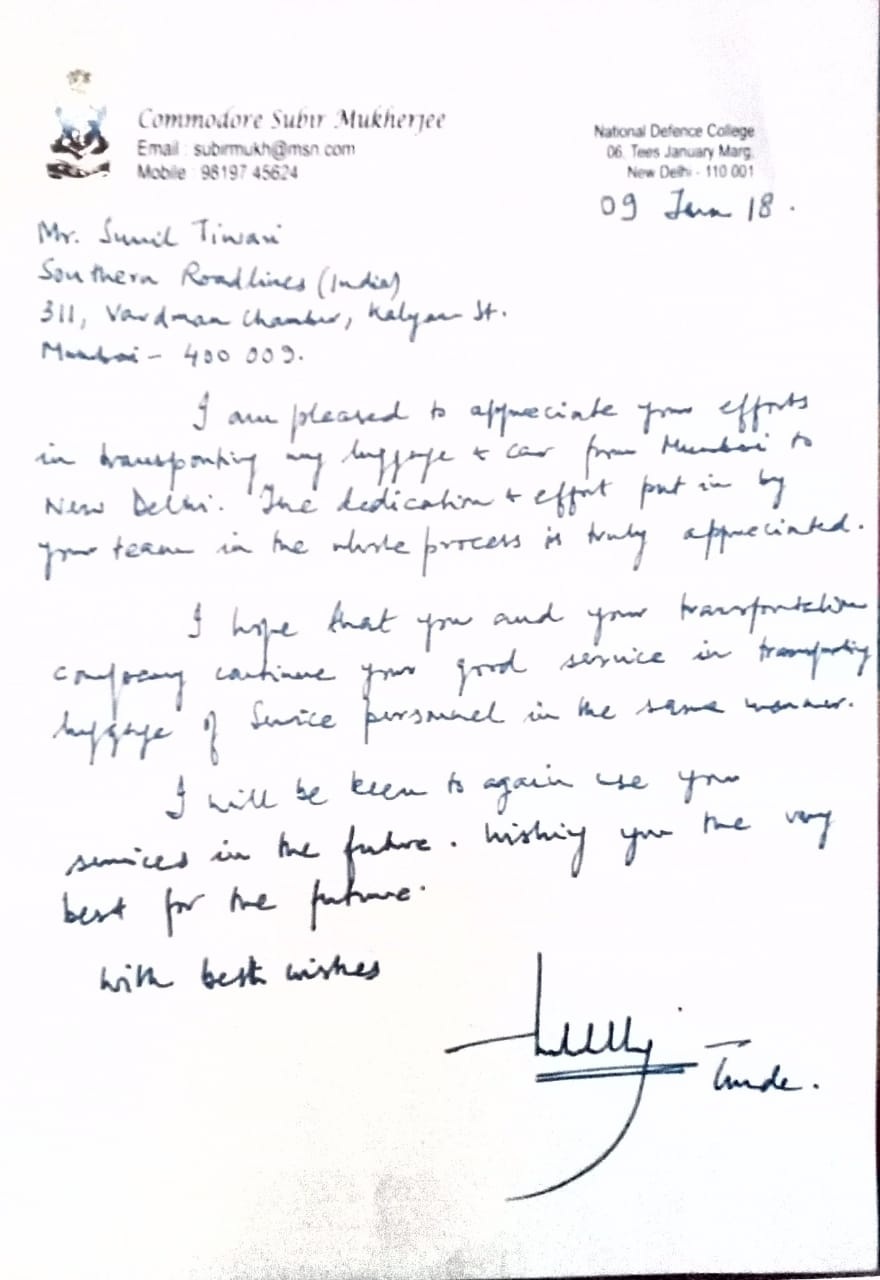 Commodore Subir Mukherjee
Email : subirmukh@msn.com
Mobile : 98197 45624
National Defence College
06, Tees January Marg,
New Delhi - 110 001
09 Jan 18.
Mr. Sunil Tiwari
Southern Roadlines (India)
311, Vardman Chamber, Kalyan St.
Mumbai - 400 009.
I am pleased to appreciate your efforts
in transporting my luggage & car from Mumbai to
New Delhi. The dedication & effort put in by
your team in the whole process is truly appreciated.
I hope that you and your transportation
company continue your good service in transporting
luggage of Service personnel in the same manner.
I will be keen to again use your
services in the future. Wishing you the very
best for the future.
With best wishes
Cmde.